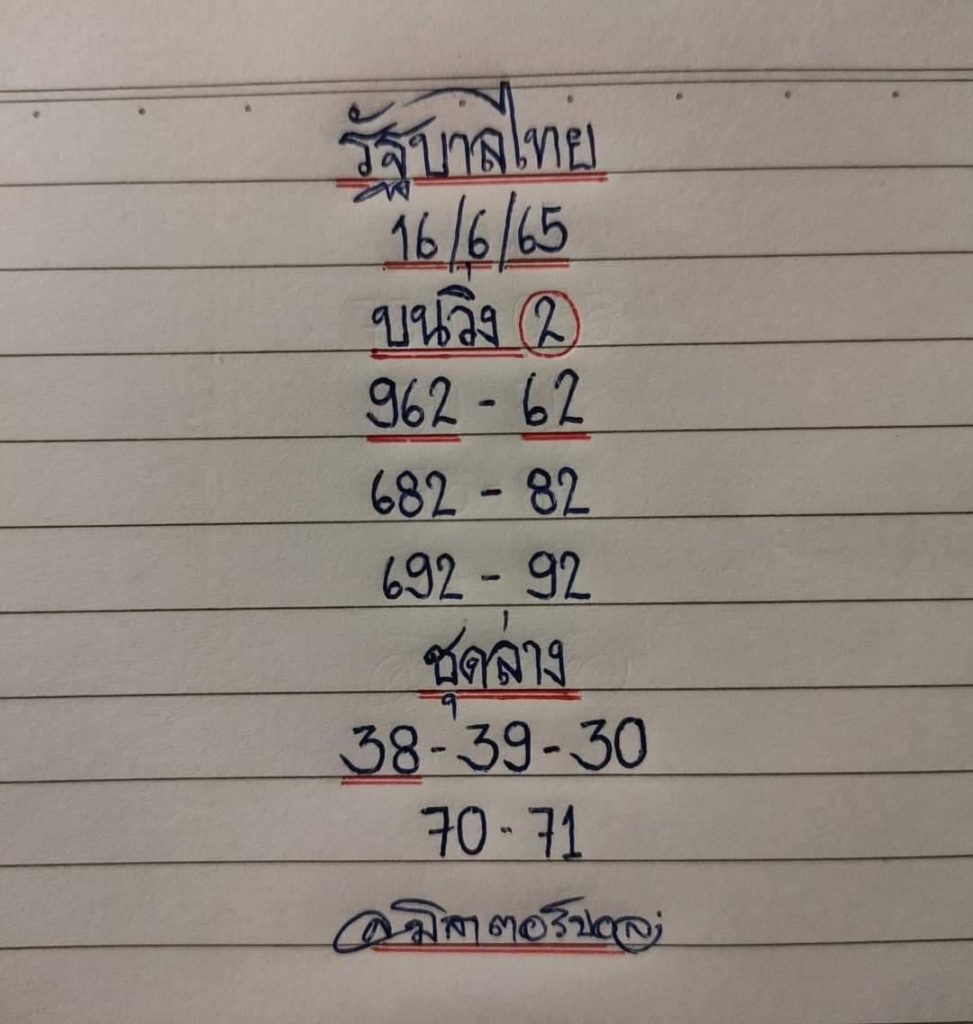 รัฐบาลไทย
16/6/65
บนวิ่ง 2
962 - 62
682 - 82
692 - 92
ชุดล่าง
38 - 39 - 30
70 - 71